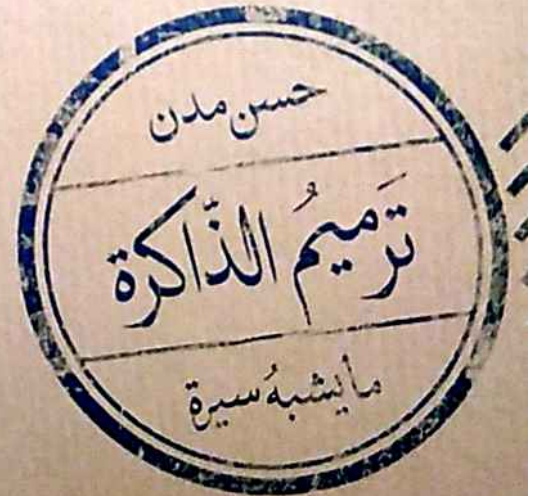 حسن مدن
تَرميمُ الذّاكرة
ما يشبهُ سيرة